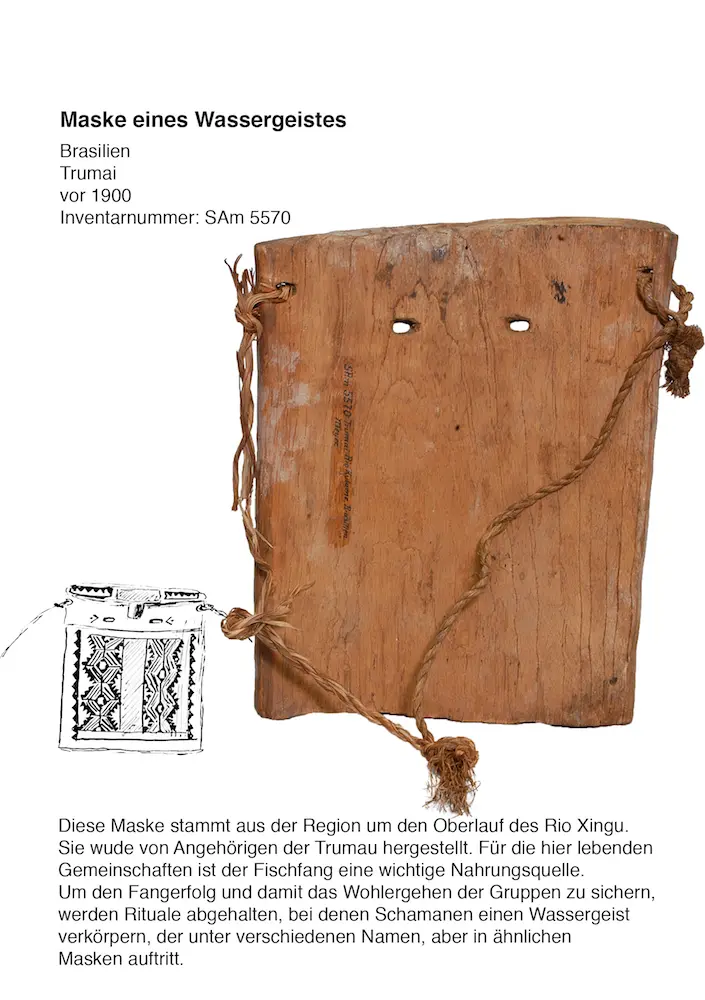 Maske eines Wassergeistes
Brasilien
Trumai
vor 1900
Inventarnummer: SAm 5570
SAm 5570 Trumai
Diese Maske stammt aus der Region um den Oberlauf des Rio Xingu.
Sie wude von Angehörigen der Trumau hergestellt. Für die hier lebenden
Gemeinschaften ist der Fischfang eine wichtige Nahrungsquelle.
Um den Fangerfolg und damit das Wohlergehen der Gruppen zu sichern,
werden Rituale abgehalten, bei denen Schamanen einen Wassergeist
verkörpern, der unter verschiedenen Namen, aber in ähnlichen
Masken auftritt.